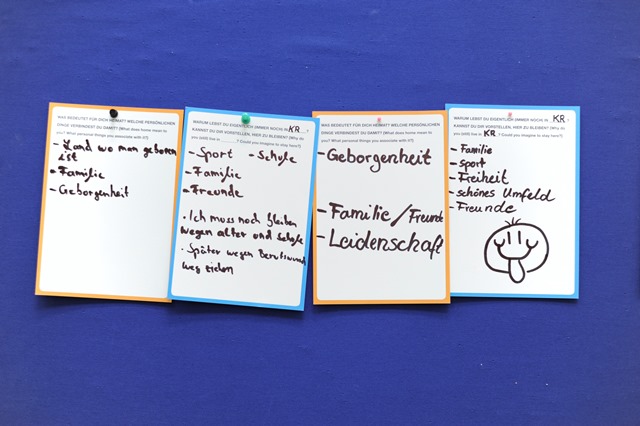 WAS BEDEUTET FÜR DICH HEIMAT? WELCHE PERSÖNLICHEN
DINGE VERBINDEST DU DAMIT? (What does home mean to
you? What personal things you associate with it?)
- Land wo man geboren
ist
- Familie
- Geborgenheit
WARUM LEBST DU EIGENTLICH IMMER NOCH IN KR ?
KANNST DU DIR VORSTELLEN, HIER ZU BLEIBEN? (Why do
you (still) live in ? Could you imagine to stay here?)
- Sport - Schule
- Familie
- Freunde
· Ich muss noch bleiben
wegen alter und Schule
· Später wegen Berufswunsch
weg ziehen
WAS BEDEUTET FÜR DICH HEIMAT? WELCHE PERSÖNLICHEN
DINGE VERBINDEST DU DAMIT? (What does home mean to
you? What personal things you associate with it?)
- Geborgenheit
- Familie / Freunde
- Leidenschaft
WARUM LEBST DU EIGENTLICH IMMER NOCH IN KR ?
KANNST DU DIR VORSTELLEN, HIER ZU BLEIBEN? (Why do
you (still) live in KR ? Could you imagine to stay here?)
- Familie
- Sport
- Freiheit
- schönes Umfeld
- Freunde